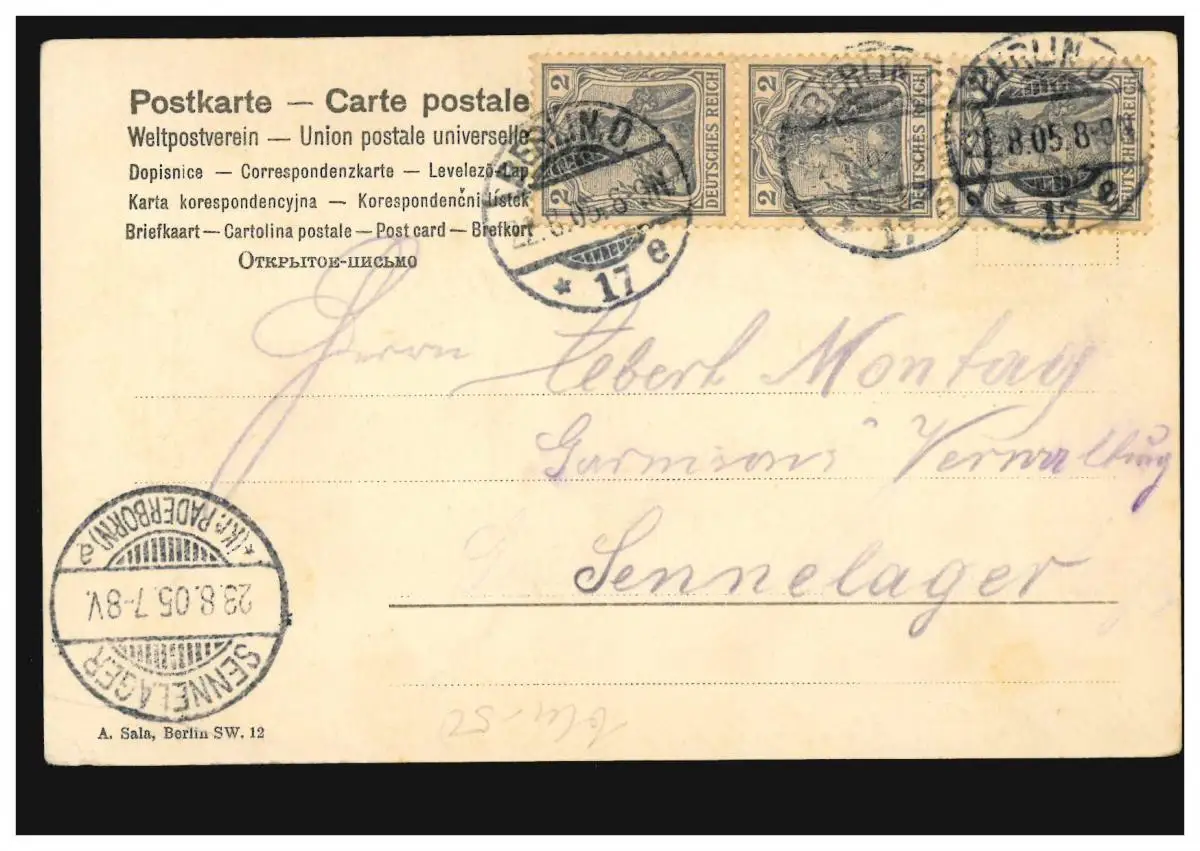 Postkarte — Carte postale
Weltpostverein — Union postale universelle
Dopisnice — Correspondenzkarte — Levelező-Lap
Karta korespondencyjna — Korespondenční lístek
Briefkaart — Cartolina postale — Post card — Brefkort
Открытое-письмо
2 2 DEUTSCHES REICH
2 2 DEUTSCHES REICH
DEUTSCHES REICH
BERLIN.O.
22.8.05.8-9N.
* 17 e
BERLIN
* 17 e
BERLIN O
22.8.05.8-9N
* 17 e
Herrn Montag
Garnisons Verwaltung
Sennelager
* (Kr. PADERBORN) a
23.8.05.7-8V.
SENNELAGER
A. Sala, Berlin SW. 12